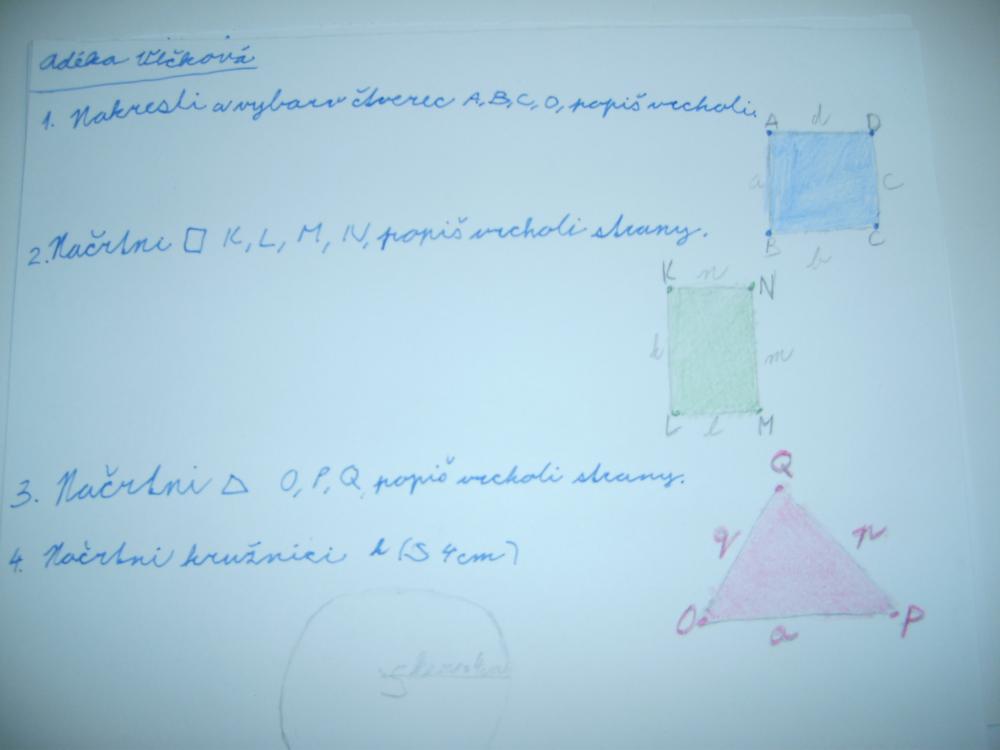 Adélka Vlčková
1. Nakresli a vybarv čtverec A, B, C, D, popiš vrcholi.
A d D
a C
B b C
2. Načrtni □ K, L, M, N, popiš vrcholi strany.
K n N
k m
L l M
3. Načrtni △ O, P, Q, popiš vrcholi strany.
Q
q p
O o P
4. Načrtni kružnici k (S 4cm)
S